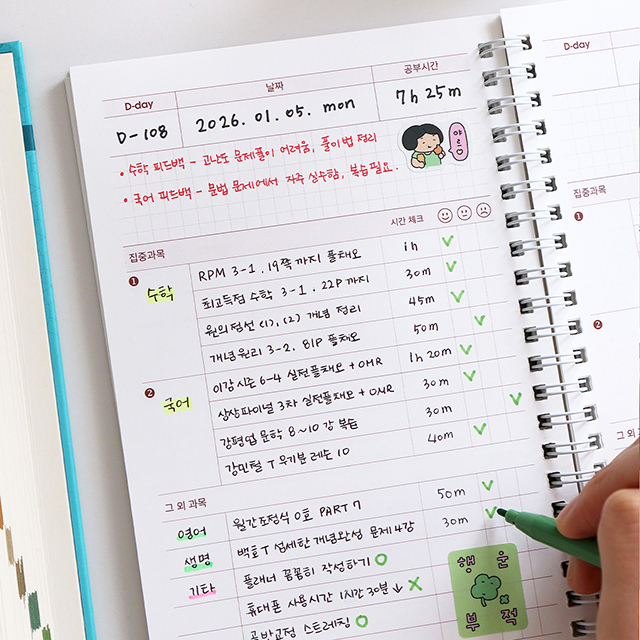 D-day 날짜 공부시간
D-108 2026. 01. 05. mon 7h 25m
• 수학 피드백 - 고난도 문제풀이 어려움, 풀이법 정리
• 국어 피드백 - 문법 문제에서 자주 실수함, 복습 필요.
야르
집중과목 시간 체크
1 수학 RPM 3-1, 19쪽까지 풀채오 1h
최고득점 수학 3-1, 22P 까지 30m
원의 접선 (1), (2) 개념 정리 45m
개념원리 3-2, 81P 풀채오 50m
2 국어 이감 시즌 6-4 실전풀채오 + OMR 1h 20m
상상파이널 3차 실전풀채오 + OMR 30m
강평업 문학 8~10강 복습 30m
강민철 T 우기분 레슨 10 40m
그 외 과목
영어 월간조정식 0호 PART 7 50m
생명 백호T 섬세한 개념완성 문제 4강 30m
기타 플래너 꼼꼼히 작성하기 O
휴대폰 사용시간 1시간 30분 ↓ X
골반교정 스트레칭 O
행운
부적
D-day
집중과목
1
2
그 외 과